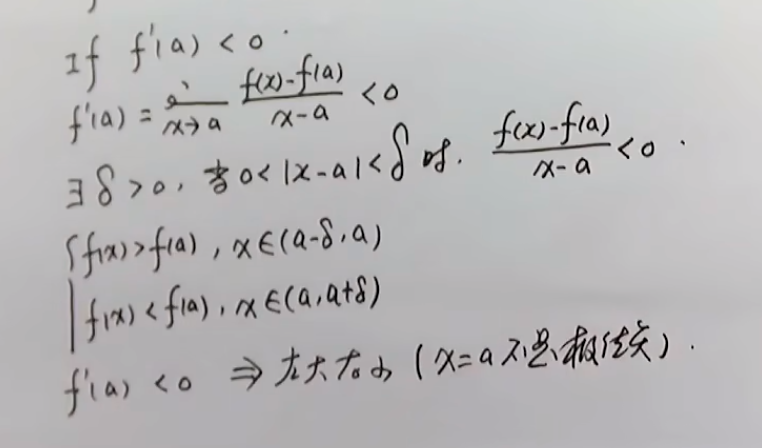 If f'(a) < 0 .
f'(a) = lim x→a (f(x)-f(a))/(x-a) < 0
∃ δ > 0, 当 0 < |x-a| < δ 时. (f(x)-f(a))/(x-a) < 0 .
{ f(x) > f(a) , x∈(a-δ, a)
f(x) < f(a) , x∈(a, a+δ)
f'(a) < 0 ⇒ 左大右小 (x=a 不是极值点) .